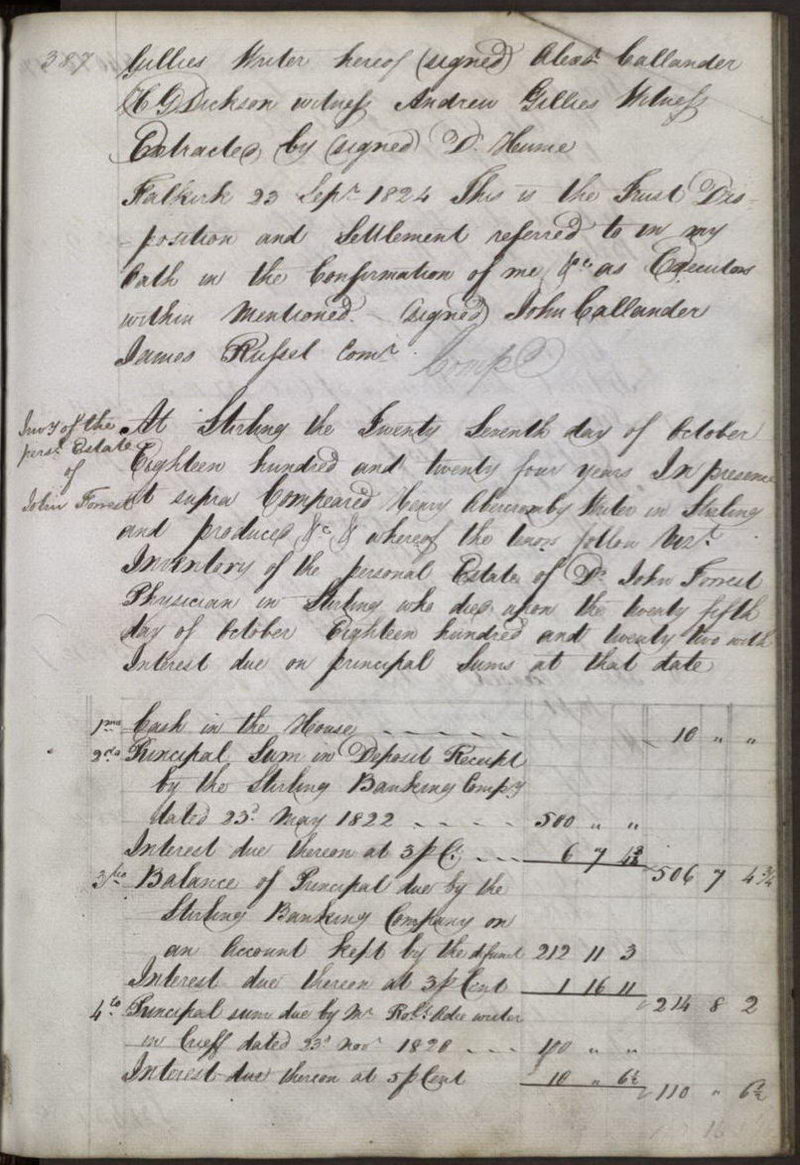 387
Gillies Writer hereof (signed) Alexr. Callander
H G Dickson witness Andrew Gillies Witness
Extracted by (signed) D. Hume
Falkirk 23 Sepr. 1824 This is the Trust Dis-
position and Settlement referred to in my
Oath in the Confirmation of me &c. as Executors
within Mentioned. (signed) John Callander
James Russel Comr.
Compd
Invy of the
persl. Estate
of
John Forrest
At Stirling the Twenty Seventh day of October
Eighteen hundred and twenty four years In presence
ut supra Compeared Henry Abercromby Writer in Stirling
and produced &c. & whereof the tenors follow Vizt.
Inventory of the personal Estate of Dr. John Forrest
Physician in Stirling who died upon the twenty fifth
day of October Eighteen hundred and twenty two with
Interest due on principal Sums at that date
1mo Cash in the House - - - - - - 10 " "
2do Principal Sum in Deposit Receipt
by the Stirling Banking Compy
dated 23d. May 1822 - - - - 500 " "
Interest due thereon at 3 p C. - - - 6 7 4¾ 506 7 4¾
3tio Balance of Principal due by the
Stirling Banking Company on
an Account kept by the defunct 212 11 3
Interest due thereon at 3 p Cent 1 16 11 214 8 2
4to Principal sum due by Mr. Robt. Adie writer
in Crieff dated 23d. Novr. 1820 - - - 100 " "
Interest due thereon at 5 p Cent 10 " 6½ 110 " 6½